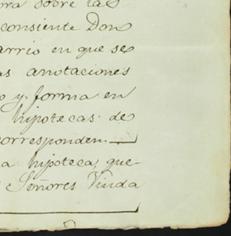 ora sobre las
consiente Don
arrio en que se
as anotaciones
o y forma en
hipotecas de
corresponden.
a hipoteca, que-
Señores Viuda